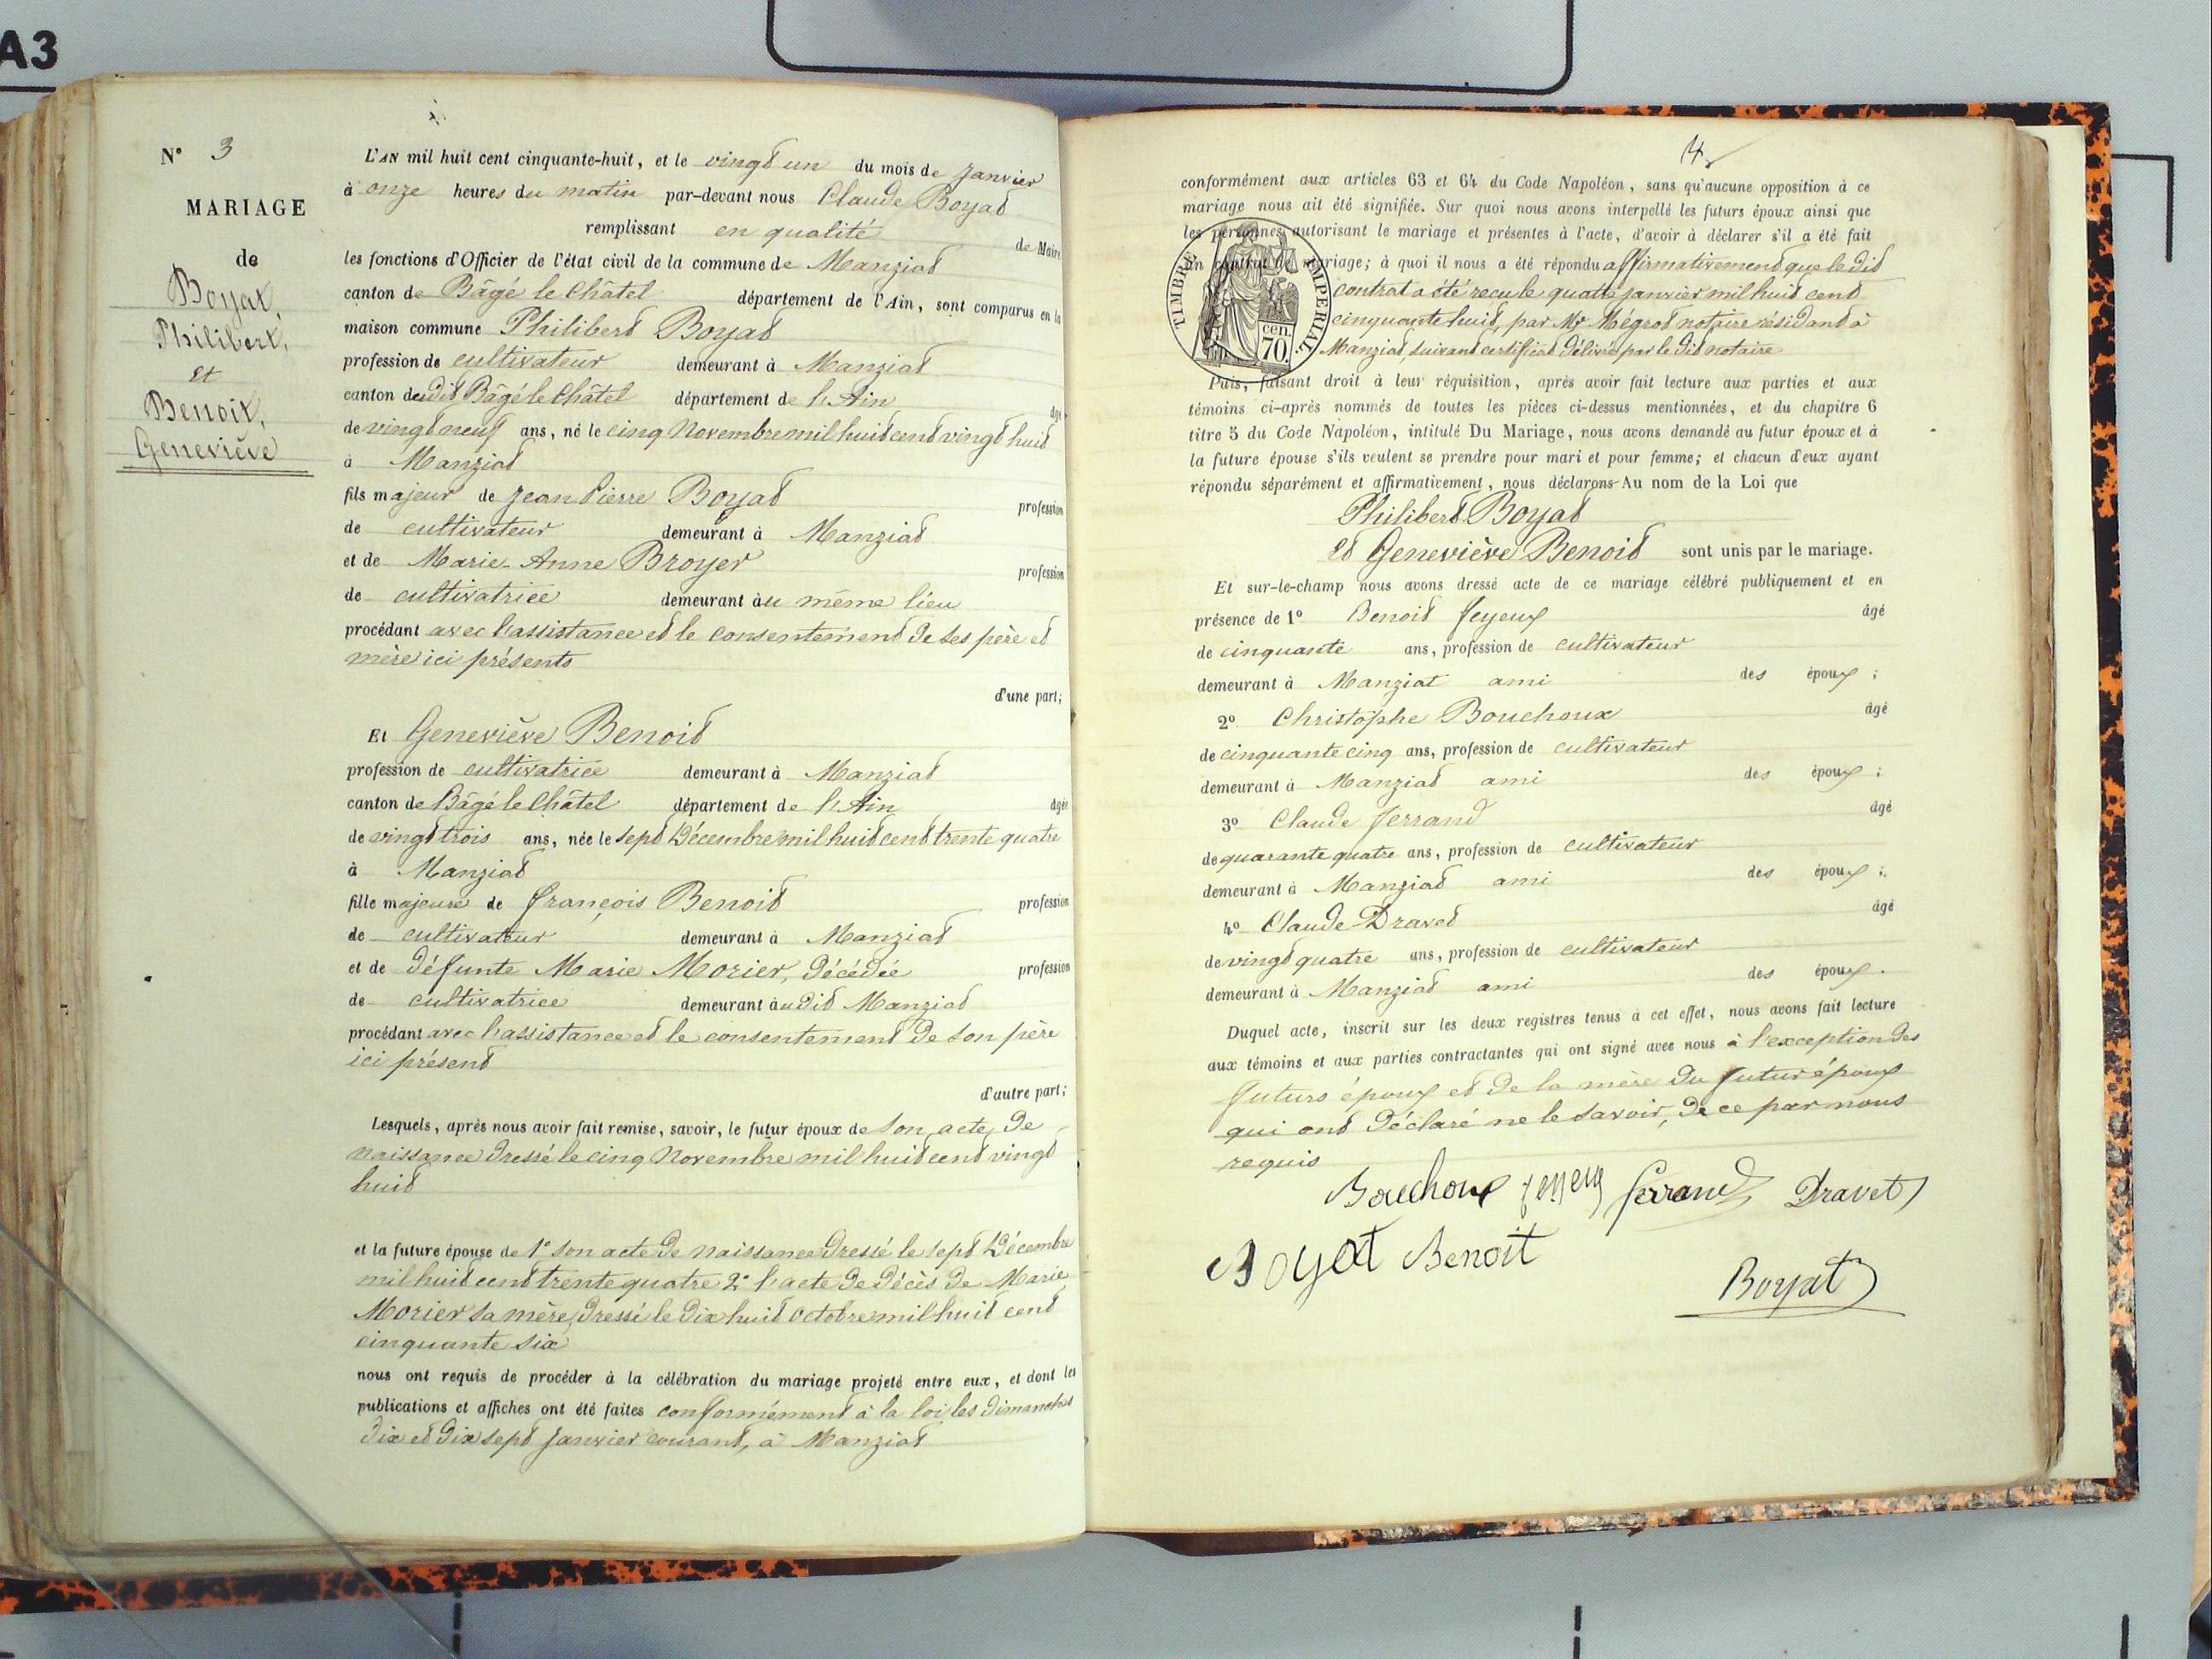 A3
N° 3
MARIAGE
de
Boyat,
Philibert,
et
Benoit,
Geneviève
L'AN mil huit cent cinquante-huit, et le vingt un du mois de Janvier
à onze heures du matin par-devant nous Claude Boyat
remplissant en qualité de Maire
les fonctions d'Officier de l'état civil de la commune de Manziat
canton de Bâgé le Châtel département de l'Ain, sont comparus en la
maison commune Philibert Boyat
profession de cultivateur demeurant à Manziat
canton dudit Bâgé le Châtel département de l'Ain âgé
de vingt neuf ans, né le cinq Novembre mil huit cent vingt huit
à Manziat
fils majeur de Jean Pierre Boyat profession
de cultivateur demeurant à Manziat
et de Marie-Anne Broyer profession
de cultivatrice demeurant au même lieu
procédant avec l'assistance et le consentement de ses père et
mère ici présents
d'une part;
Et Geneviève Benoit
profession de cultivatrice demeurant à Manziat
canton de Bâgé le Châtel département de l'Ain âgée
de vingt trois ans, née le sept Décembre mil huit cent trente quatre
à Manziat
fille majeure de François Benoit profession
de cultivateur demeurant à Manziat
et de défunte Marie Morier, décédée profession
de cultivatrice demeurant audit Manziat
procédant avec l'assistance et le consentement de son père
ici présent
d'autre part;
Lesquels, après nous avoir fait remise, savoir, le futur époux de son acte de
naissance dressé le cinq Novembre mil huit cent vingt
huit
et la future épouse de 1° son acte de naissance dressé le sept Décembre
mil huit cent trente quatre 2° l'acte de décès de Marie
Morier sa mère, dressé le dix huit octobre mil huit cent
cinquante six
nous ont requis de procéder à la célébration du mariage projeté entre eux, et dont les
publications et affiches ont été faites conformément à la loi les dimanches
dix et dix sept Janvier courant, à Manziat
4
conformément aux articles 63 et 64 du Code Napoléon, sans qu'aucune opposition à ce
mariage nous ait été signifiée. Sur quoi nous avons interpellé les futurs époux ainsi que
les personnes autorisant le mariage et présentes à l'acte, d'avoir à déclarer s'il a été fait
un contrat de mariage; à quoi il nous a été répondu affirmativement que le dit
contrat a été reçu le quatre janvier mil huit cent
cinquante huit, par Mr Mégrot notaire résidant à
Manziat, suivant certificat délivré par le dit notaire
TIMBRE IMPERIAL
cen.
70.
Puis, faisant droit à leur réquisition, après avoir fait lecture aux parties et aux
témoins ci-après nommés de toutes les pièces ci-dessus mentionnées, et du chapitre 6
titre 5 du Code Napoléon, intitulé Du Mariage, nous avons demandé au futur époux et à
la future épouse s'ils veulent se prendre pour mari et pour femme; et chacun d'eux ayant
répondu séparément et affirmativement, nous déclarons Au nom de la Loi que
Philibert Boyat
et Geneviève Benoit sont unis par le mariage.
Et sur-le-champ nous avons dressé acte de ce mariage célébré publiquement et en
présence de 1° Benoit Feyeux âgé
de cinquante ans, profession de cultivateur
demeurant à Manziat ami des époux;
2° Christophe Bouchoux âgé
de cinquante cinq ans, profession de cultivateur
demeurant à Manziat ami des époux;
3° Claude Ferrand âgé
de quarante quatre ans, profession de cultivateur
demeurant à Manziat ami des époux;
4° Claude Dravet âgé
de vingt quatre ans, profession de cultivateur
demeurant à Manziat ami des époux.
Duquel acte, inscrit sur les deux registres tenus à cet effet, nous avons fait lecture
aux témoins et aux parties contractantes qui ont signé avec nous à l'exception des
futurs époux et de la mère du futur époux
qui ont déclaré ne le savoir, de ce par nous
requis
Bouchoux Ferrand Dravet
Boyat Benoit
Boyat